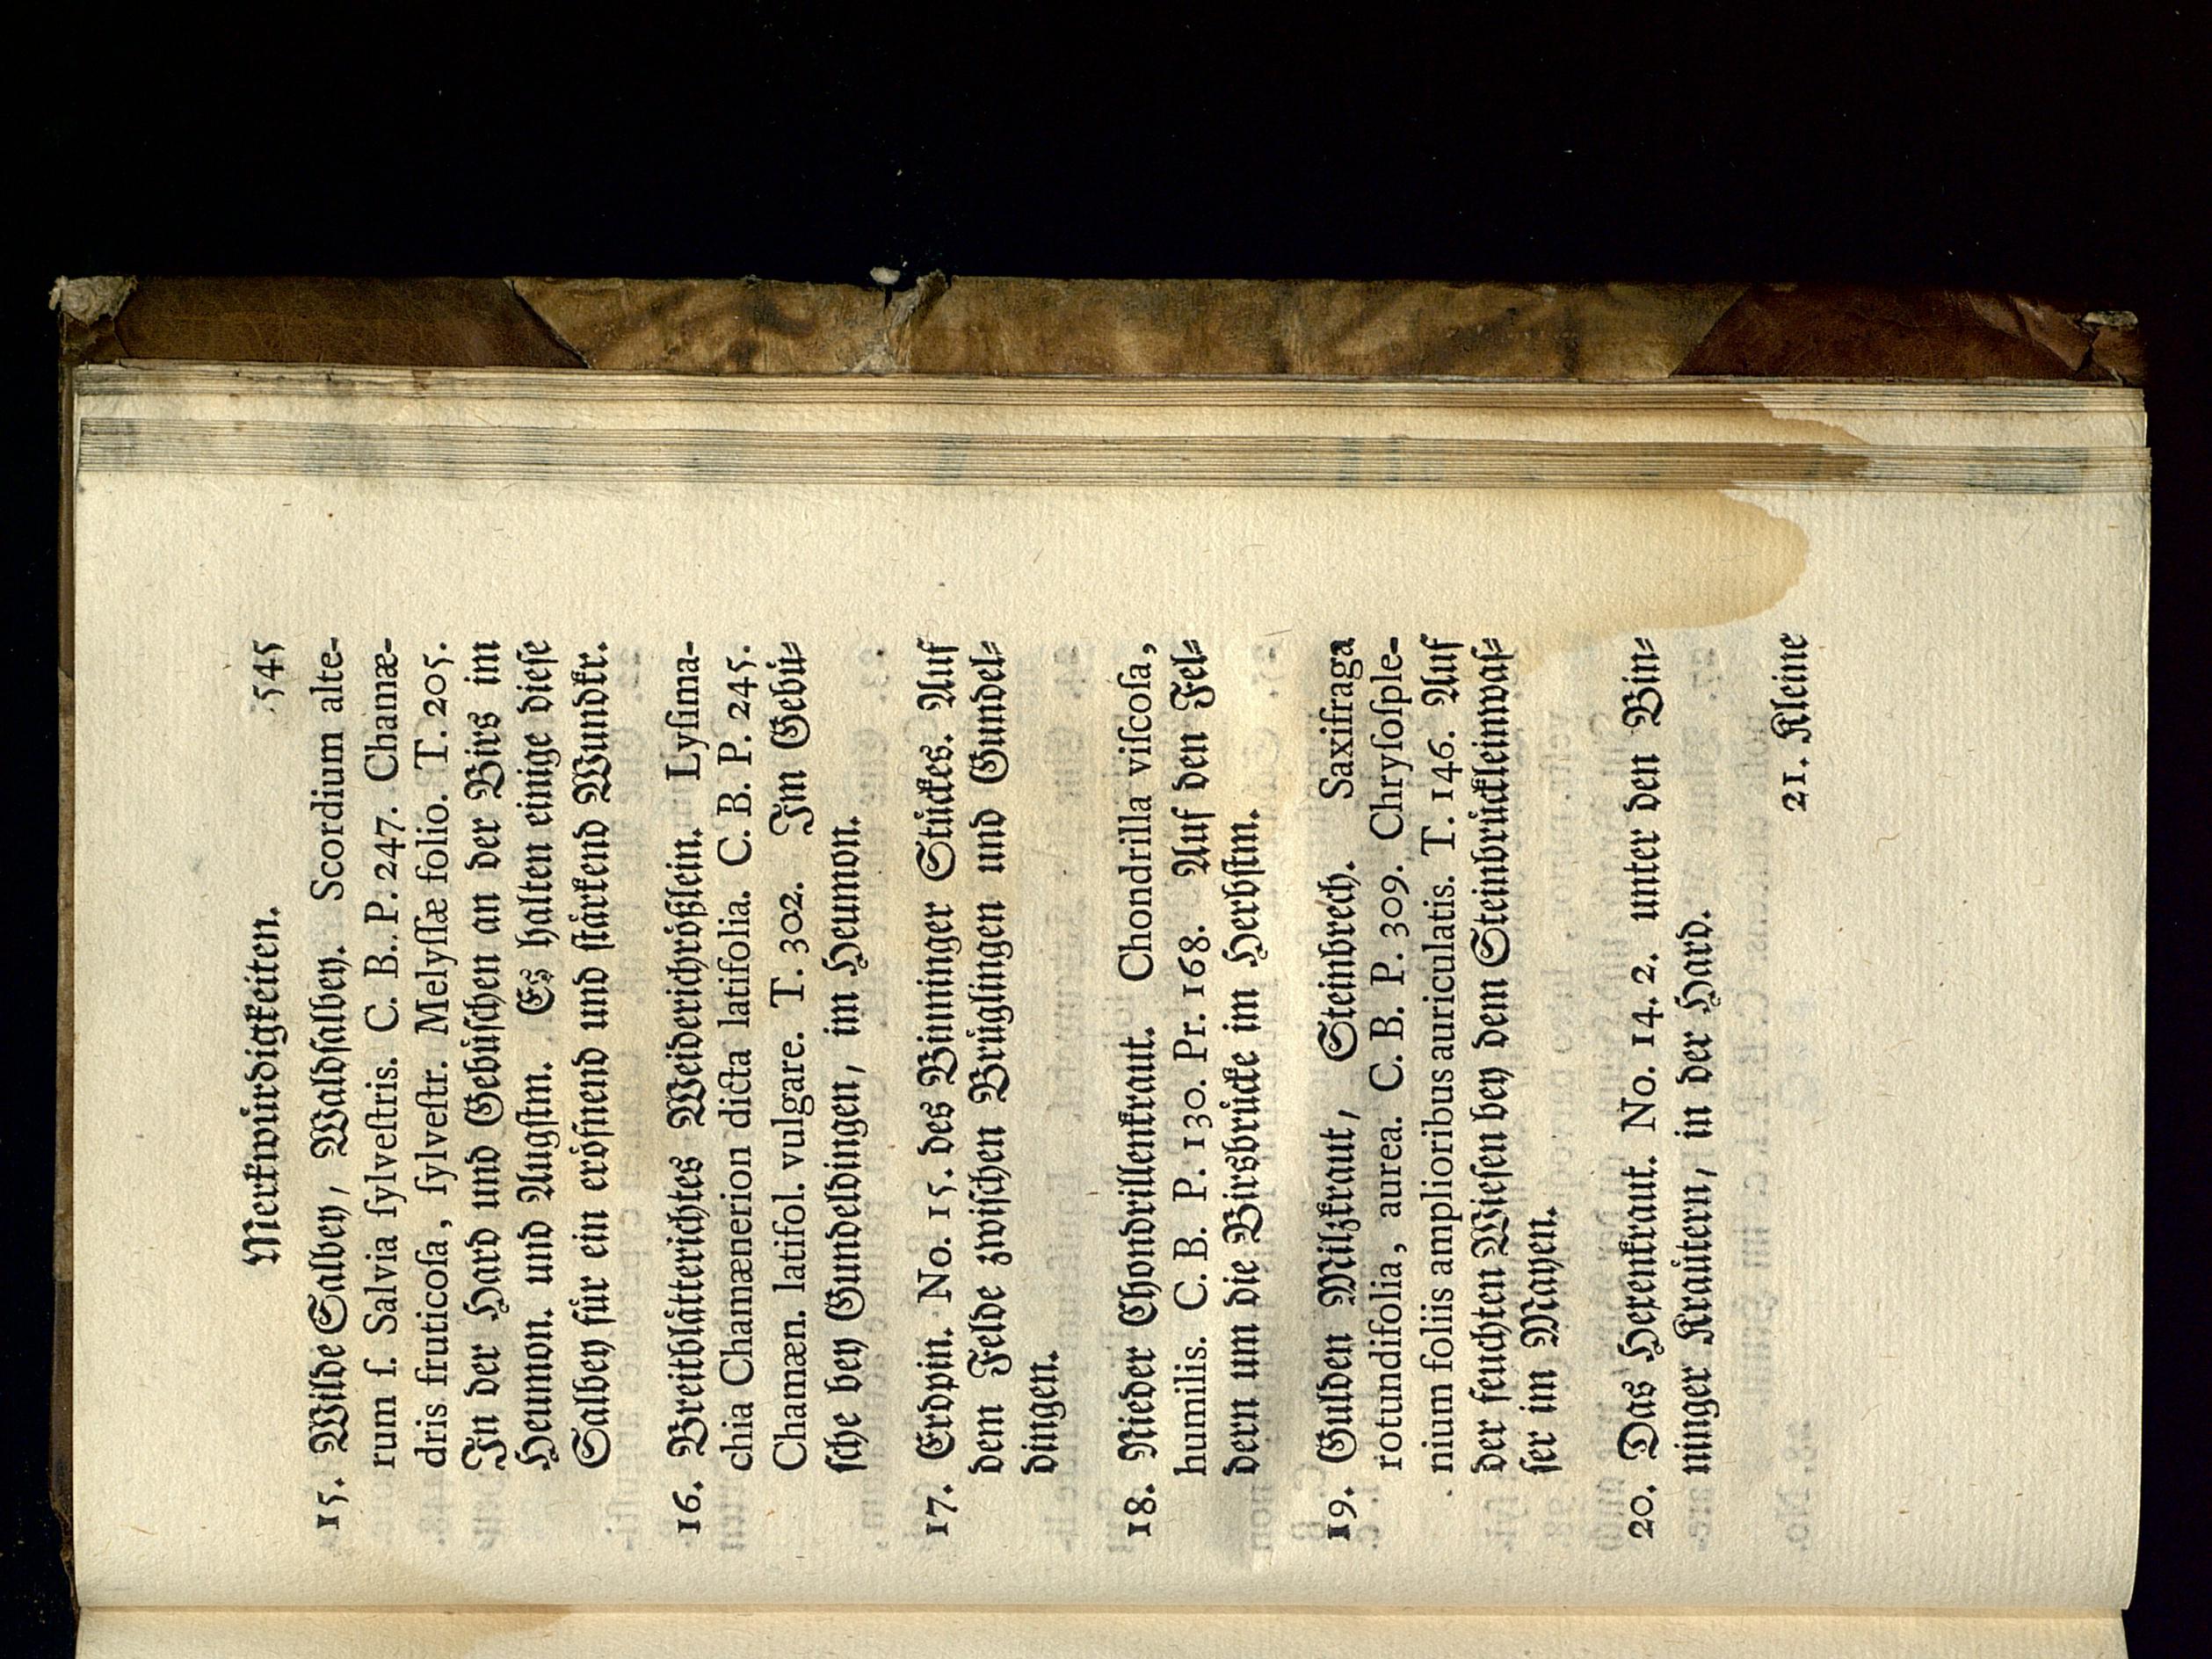 Merkwürdigkeiten. 545
15. Wilde Salbey, Waldsalbey. Scordium alte-
rum ſ. Salvia ſylveſtris. C. B. P. 247. Chamæ-
dris fruticoſa, ſylveſtr. Melyſſæ folio. T. 205.
In der Hard und Gebüſchen an der Birs im
Heumon. und Augſtm. Es halten einige dieſe
Salbey für ein eröfnend und ſtärkend Wundkr.
16. Breitblätterichtes Weiderichrößlein. Lyſima-
chia Chamænerion dicta latifolia. C. B. P. 245.
Chamæn. latifol. vulgare. T. 302. Im Gebü-
ſche bey Gundeldingen, im Heumon.
17. Erdpin. No. 15. des Binninger Stückes. Auf
dem Felde zwiſchen Brüglingen und Gundel-
dingen.
18. Nieder Chondrillenkraut. Chondrilla viſcoſa,
humilis. C. B. P. 130. Pr. 168. Auf den Fel-
dern um die Birsbrücke im Herbſtm.
19. Gulden Milzkraut, Steinbrech. Saxifraga
rotundifolia, aurea. C. B. P. 309. Chryſoſple-
nium foliis amplioribus auriculatis. T. 146. Auf
der feuchten Wieſen bey dem Steinbrückleinwaſ-
ſer im Mayen.
20. Das Hexenkraut. No. 14. 2. unter den Bin-
ninger Kräutern, in der Hard.
21. Kleine